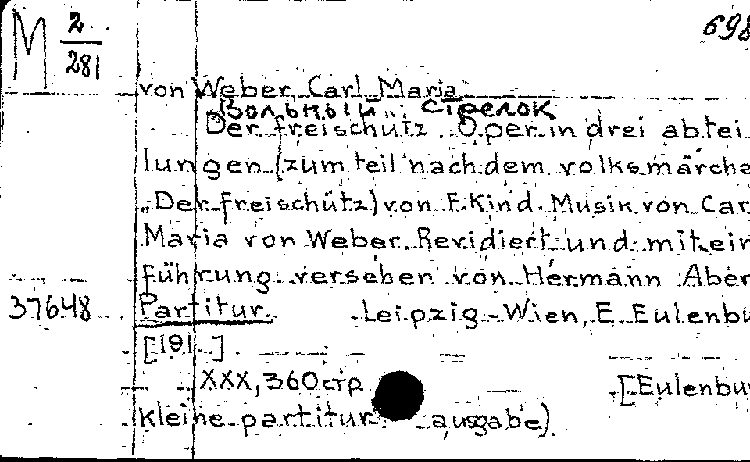 M 2/281
698
von Weber, Carl Maria
Вольный стрелок
Der freischütz. Oper in drei abtei
lungen (zum teil nach dem volksmärche
„Der freischütz) von F. Kind. Musik von Car
Maria von Weber. Revidiert und mit ein
führung versehen von Hermann Aber
37648 Partitur. Leipzig-Wien, E. Eulenbu
[191 ]
XXX, 360 стр [Eulenbu
kleine partitur ausgabe)